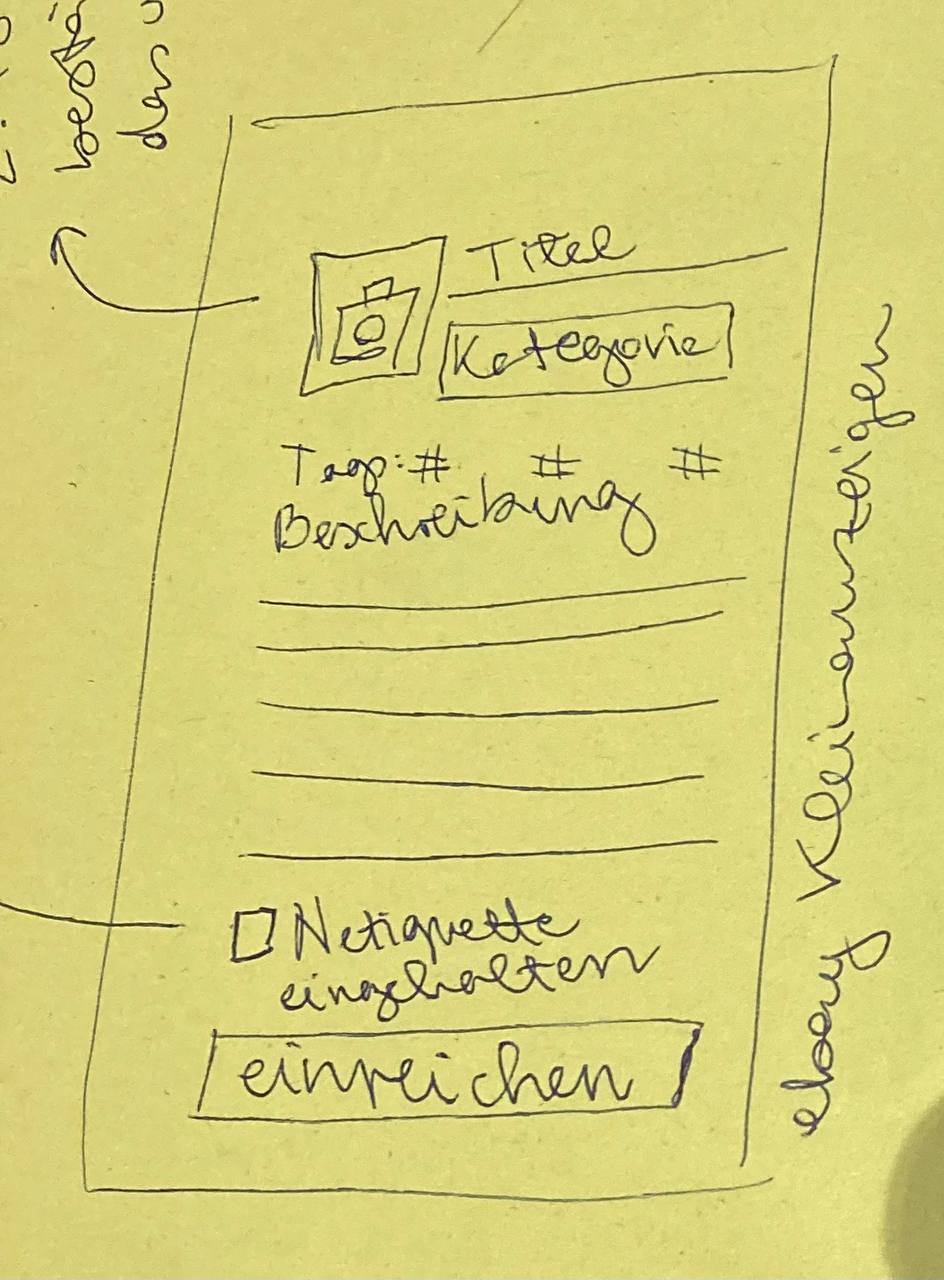 Titel
Kategorie
Tags: # # #
Beschreibung
Netiquette
eingehalten
einreichen
ebay Kleinanzeigen